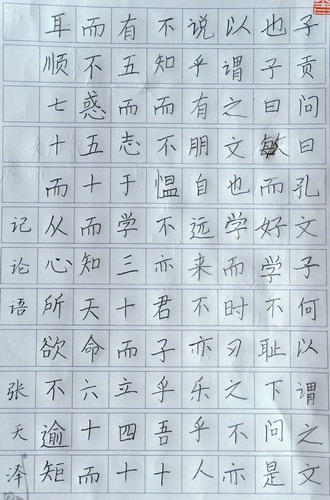 子贡问曰孔文子何以谓之文
也子曰敏而好学不耻下问是
以谓之文也学而时习之不亦
说乎有朋自远来不亦乐乎人
不知而不愠不亦君子乎吾十
有五而志于学三十而立四十
而不惑五十而知天命六十而
耳顺七十而从心所欲不逾矩
记论语 张天泽